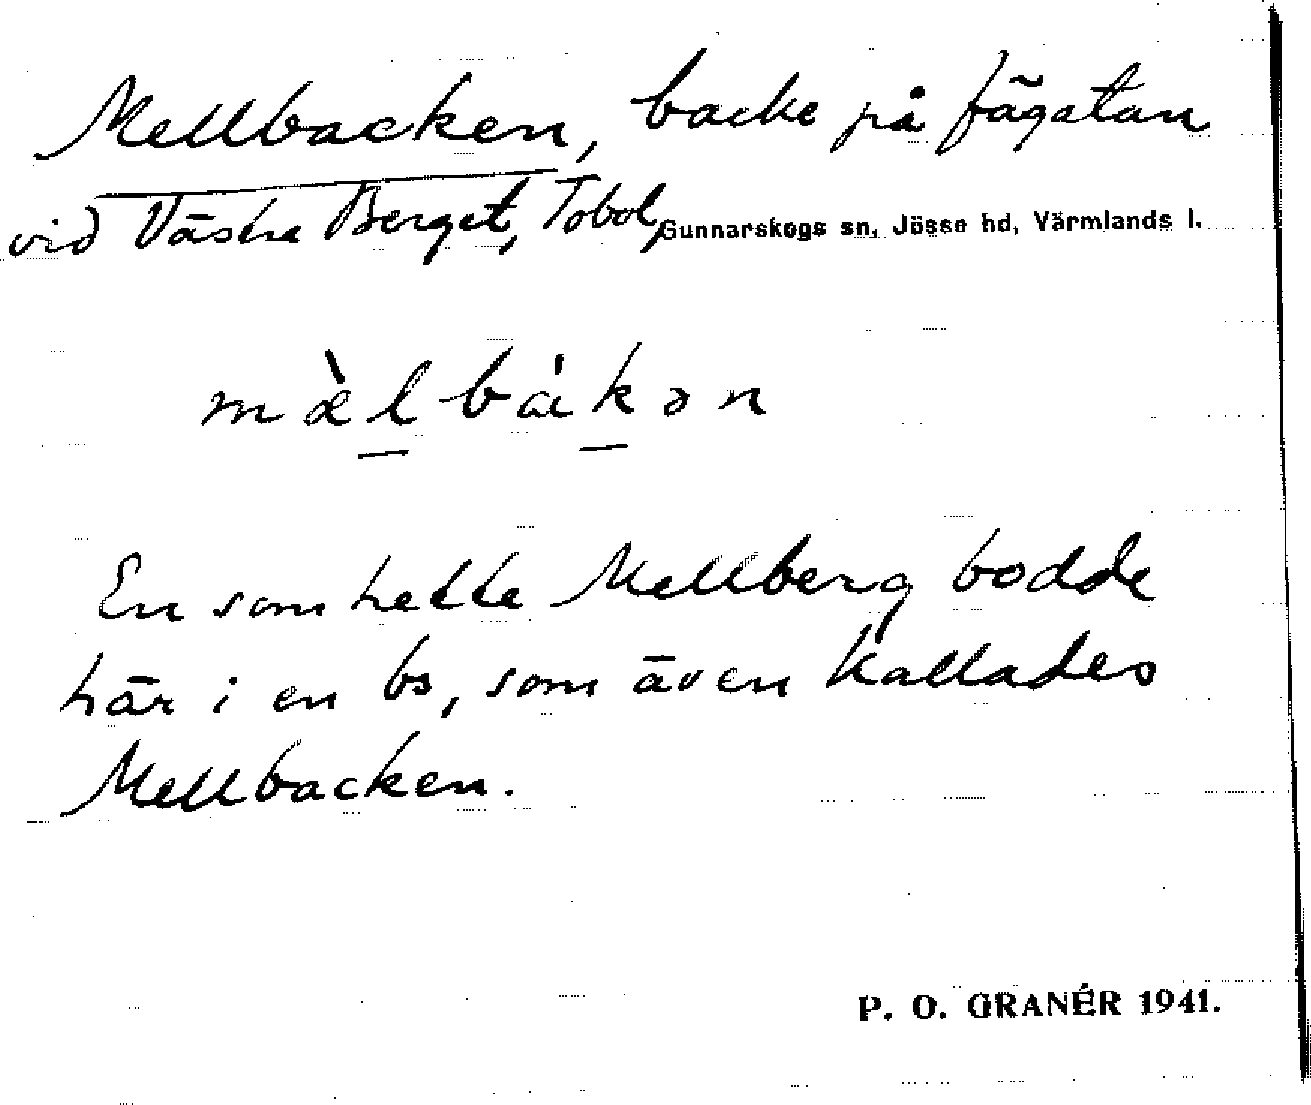 Mellbacken, backe på fägatan
vid Västra Berget, Tobol, Gunnarskogs sn, Jösse hd, Värmlands l.
mæ̀lbákən
En som hette Mellberg bodde
här i en bs, som även kallades
Mellbacken.
P. O. GRANÉR 1941.